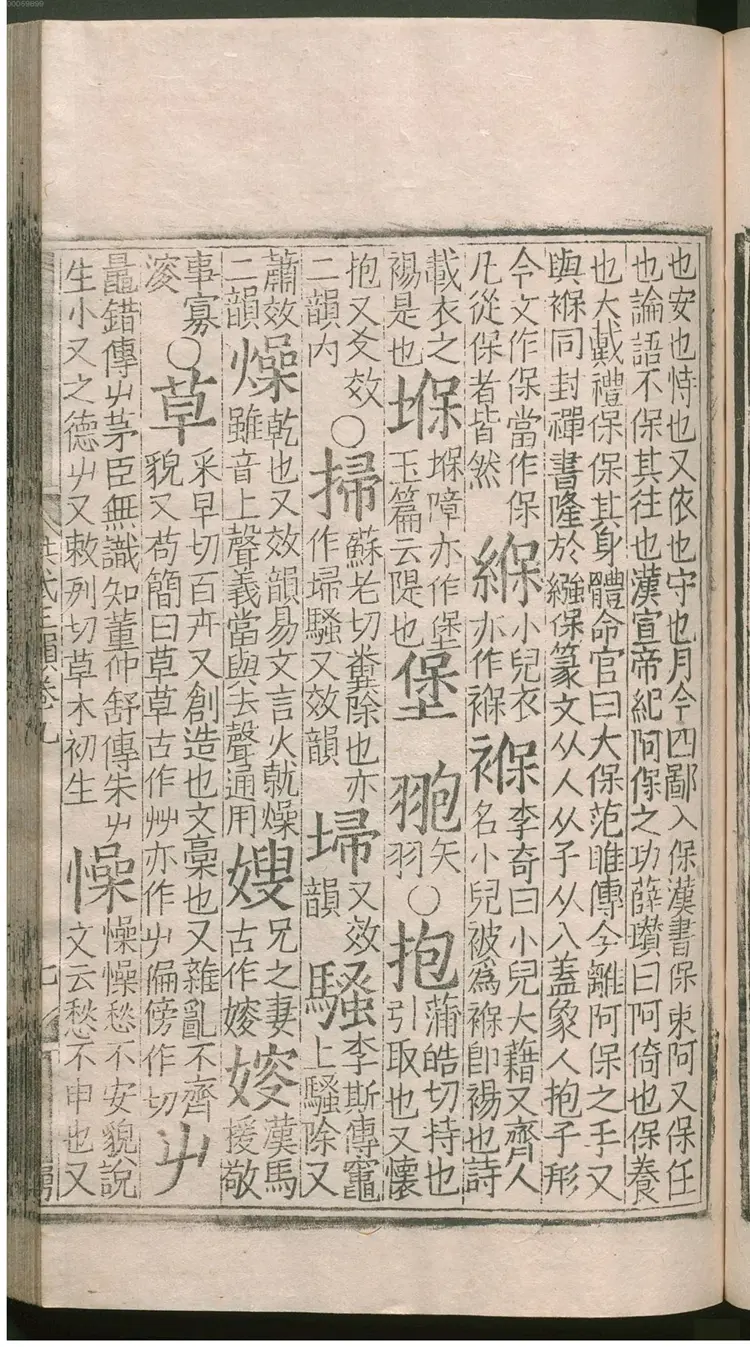 00069899
也安也恃也又依也守也月令四鄙入保漢書保束阿又保任
也論語不保其往也漢宣帝紀阿保之功薛瓚曰阿倚也保養
也大戴禮保保其身體命官曰大保范睢傳今離阿保之手又
與褓同封禪書隆於繈保篆文从人从子从八蓋象人抱子形
今文作保當作保
凡從保者皆然
緥
小兒衣
亦作褓
褓
李奇曰小兒大藉又齊人
名小兒被爲褓卽裼也詩
載衣之
裼是也
堢
堢障亦作堡
玉篇云隄也
堡
䎂
矢
羽
○抱
蒲皓切持也
引取也又懷
抱又爻效
二韻內
○掃
蘇老切糞除也亦
作埽騷又效韻
埽
又效
韻
騷
李斯傳竈
上騷除又
蕭效
二韻
燥
乾也又效韻易文言火就燥
雖音上聲義當與去聲通用
嫂
兄之妻
古作㛮
㛮
漢馬
援敬
事寡
○草
采早切百卉又創造也文稾也又雜亂不齊
貌又苟簡曰草草古作艸亦作屮偏傍作切
屮
鼂錯傳屮茅臣無識知董仲舒傳朱屮
生小又之德屮又敕列切草木初生
懆
懆懆愁不安貌說
文云愁不申也又
洪武正韻卷九
七